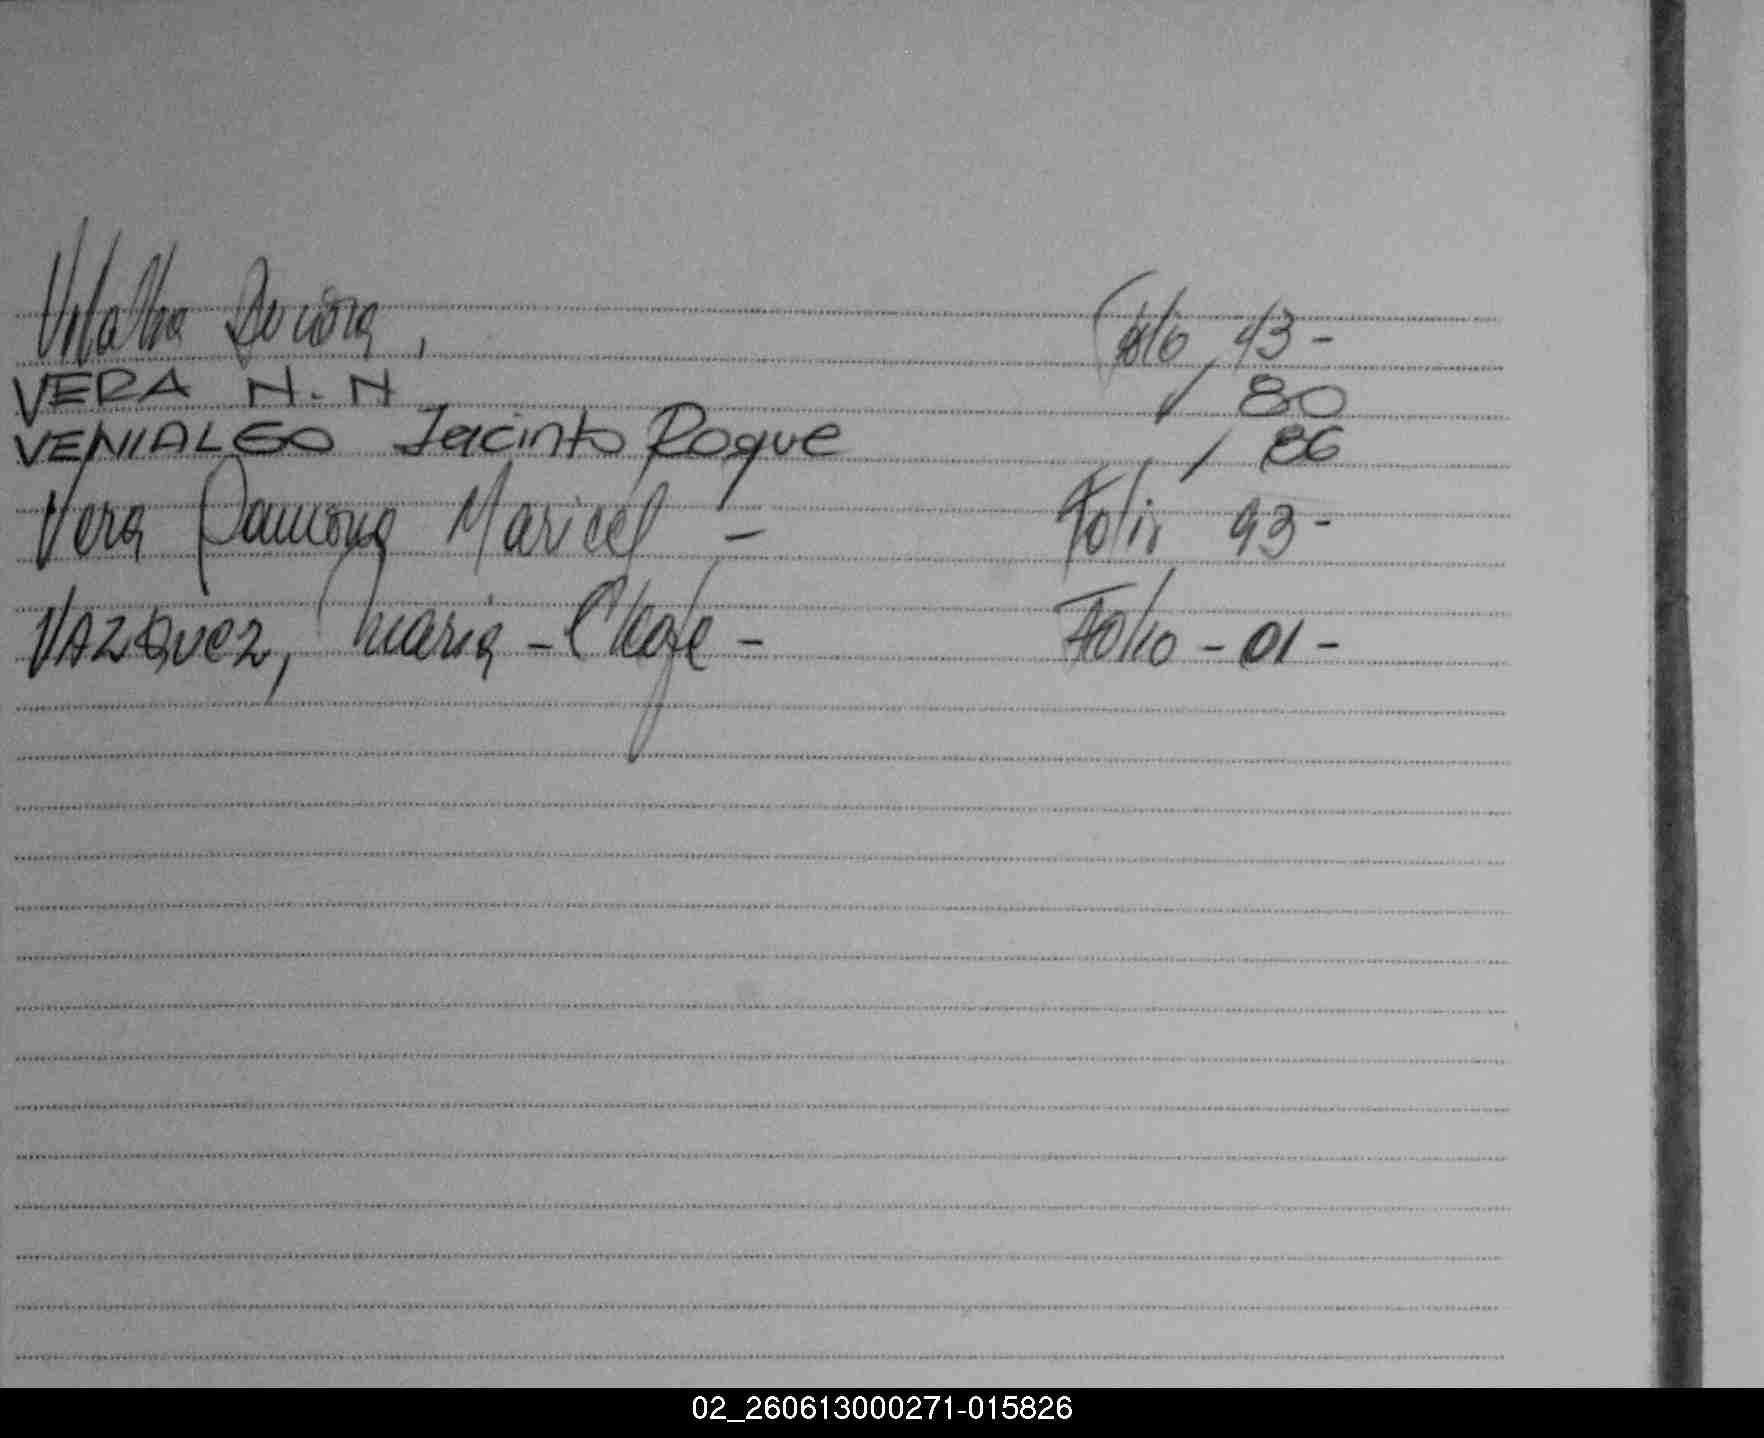 Vilalba
Folio 43-
VERA N.N / 80
VENIALGO Jacinto Roque / 86
Vera Ramona Maricel - Folio 93-
VAZQUEZ, Maria - Folio - 01 -
02_260613000271-015826